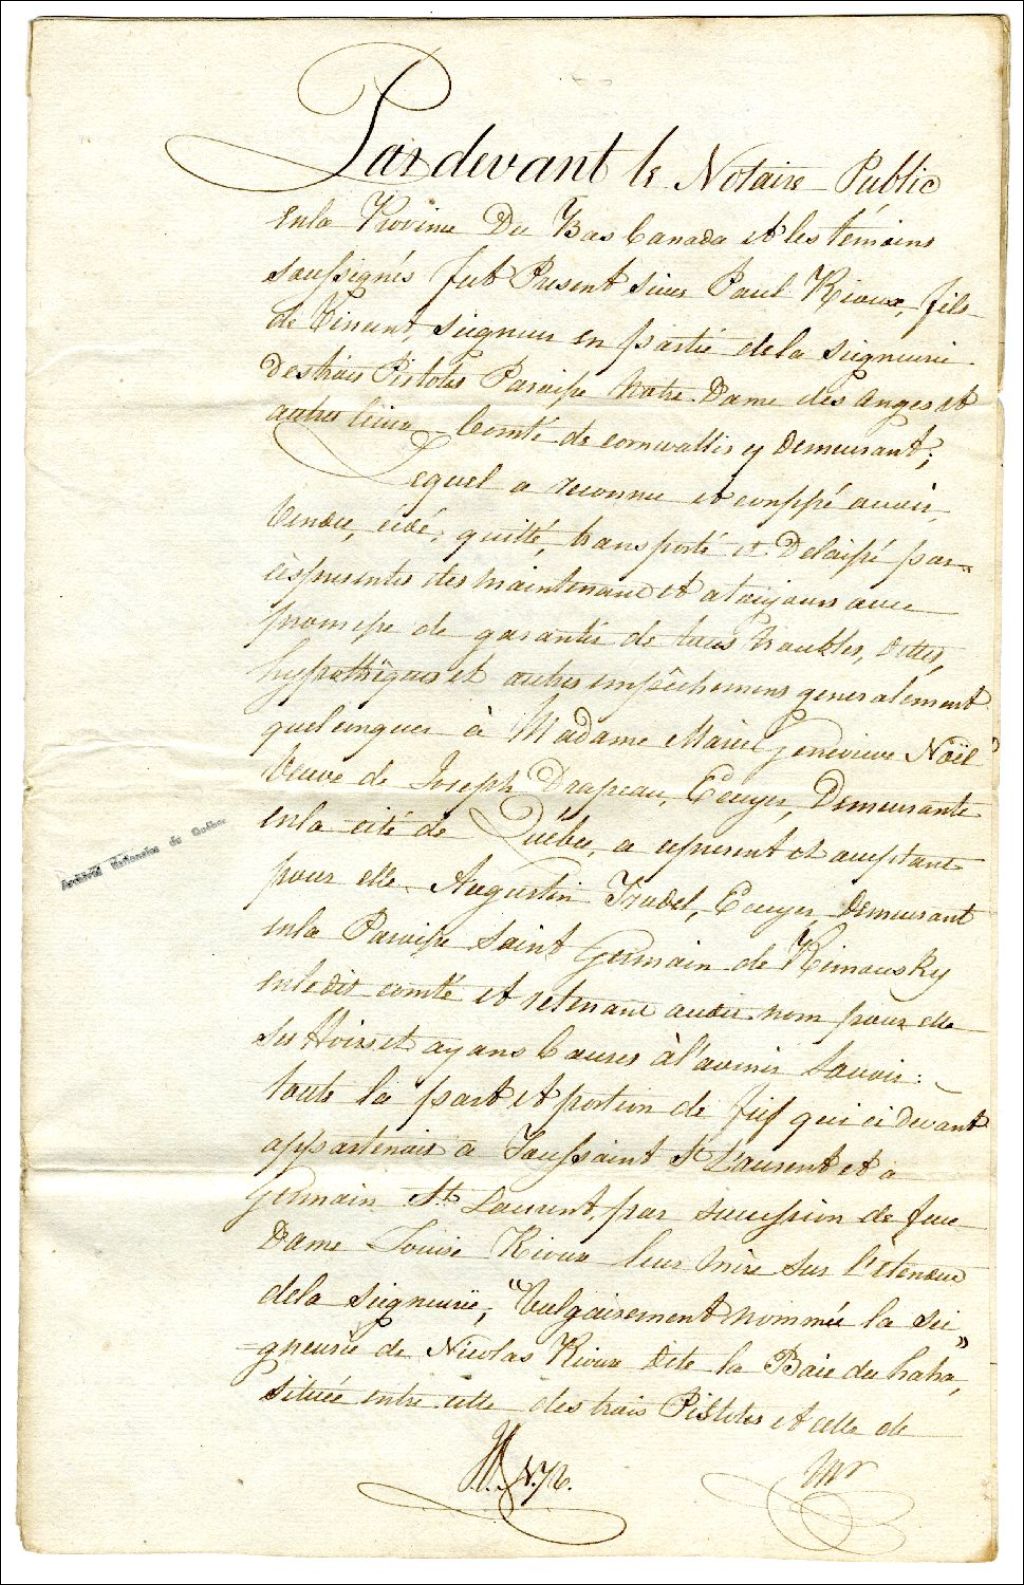 Pardevant le Notaire Public
en la Province Du Bas Canada et les témoins
soussignés fut Present sieur Paul Rioux, fils
de Vincent, seigneur en partie de la seigneurie
Des trois Pistoles Paroisse Notre Dame des Anges et
autres lieux Comté de cornwallis y Demeurant;
Lequel a reconnu et confessé avoir
Vendu, cédé, quitté, transporté et Délaissé par
ces presentes des maintenant et a toujours avec
promesse de garantie de tous troubles, dettes,
hypothêques et autres empêchemens generalement
quelconques à Madame Marie Genevieve Noël
Veuve de Joseph Drapeau, Ecuyer, Demeurante
en la cité de Québec, a ce present et acceptant
pour elle Augustin Trudel, Ecuyer, Demeurant
en la Paroisse Saint Germain de Rimousky
en le dit comté et retenant au dit nom pour elle
ses Hoirs et ayans Causes à l'avenir Savoir:
toute la part et portion de fief qui ci devant
appartenait a Toussaint St Laurent et à
Germain St Laurent, par succession de feue
Dame Louise Rioux leur mère sur l'étendue
de la seigneurie, "Vulgairement nommée la sei
=gneurie de Nicolas Rioux dite la Baie du haha,"
située entre celle des trois Pistoles et celle de
N.P.
Mr
Archives Nationales du Québec